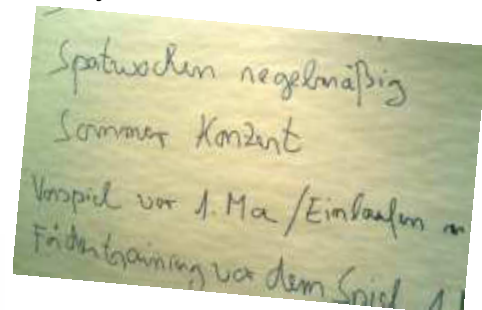 Spatwochen regelmäßig
Sommer Konzert
Vorspiel vor 1. Ma / Einlaufen
Fördertraining vor dem Spiel 1